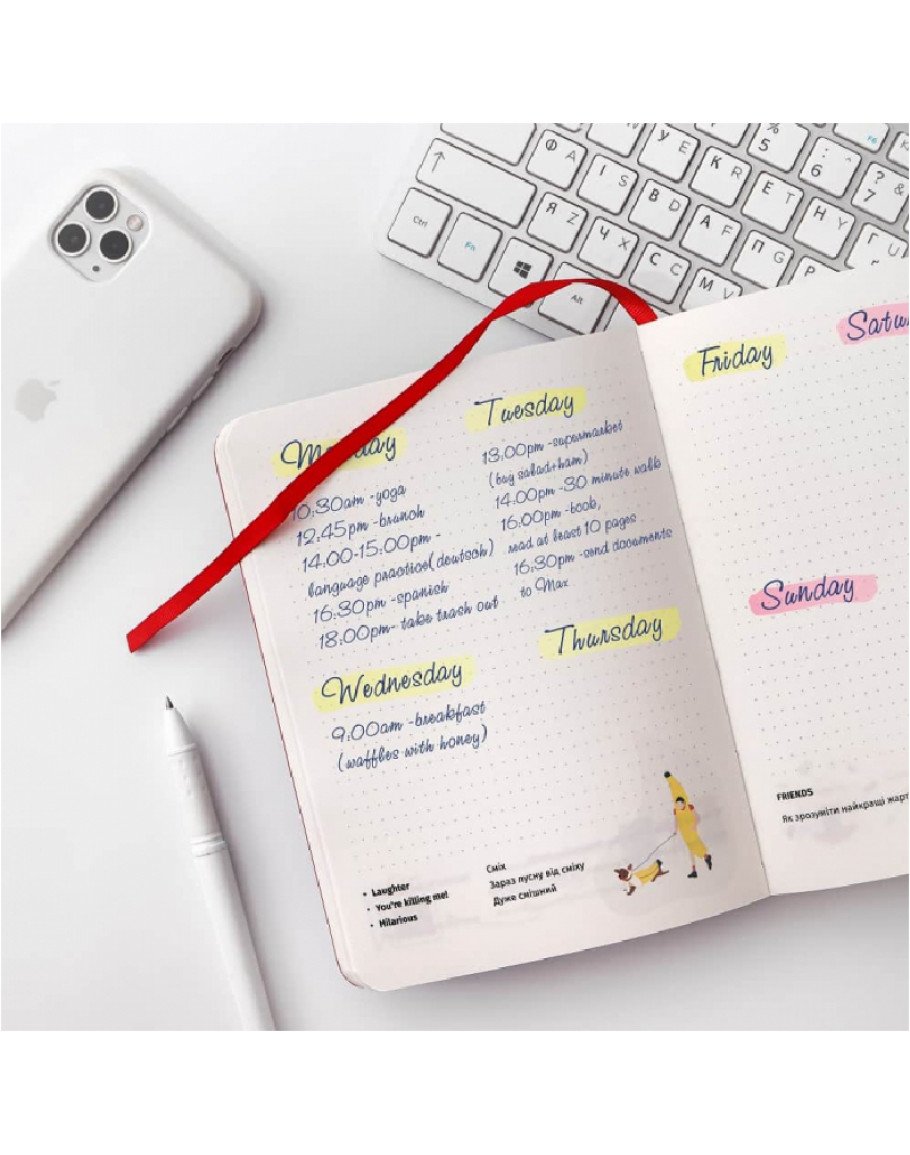 Monday
10:30am -yoga
12:45pm -brunch
14.00-15:00pm -
language practice(deutsch)
16:30pm -spanish
18:00pm- take trash out
Tuesday
13:00pm -supermarket
(buy salad+ham)
14.00pm -30 minute walk
16:00pm -book,
read at least 10 pages
16:30pm -send documents
to Max
Wednesday
9:00am -breakfast
(waffles with honey)
Thursday
Friday
Satu
Sunday
• Laughter
• You're killing me!
• Hilarious
Сміх
Зараз лусну від сміху
Дуже смішний
FRIENDS
Як зрозуміти найкращі жарт
Ctrl
Fn
Alt
Ф A
І S
В D
А F
П G
Р
Я Z
Ч X
С C
М
У E
К R
Е T
Н Y
Г U
% 5
: ^ 6
? & 7
F6